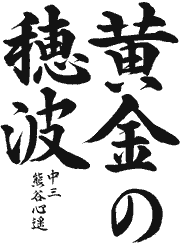 黄金の
穂波
中三
熊谷心遥